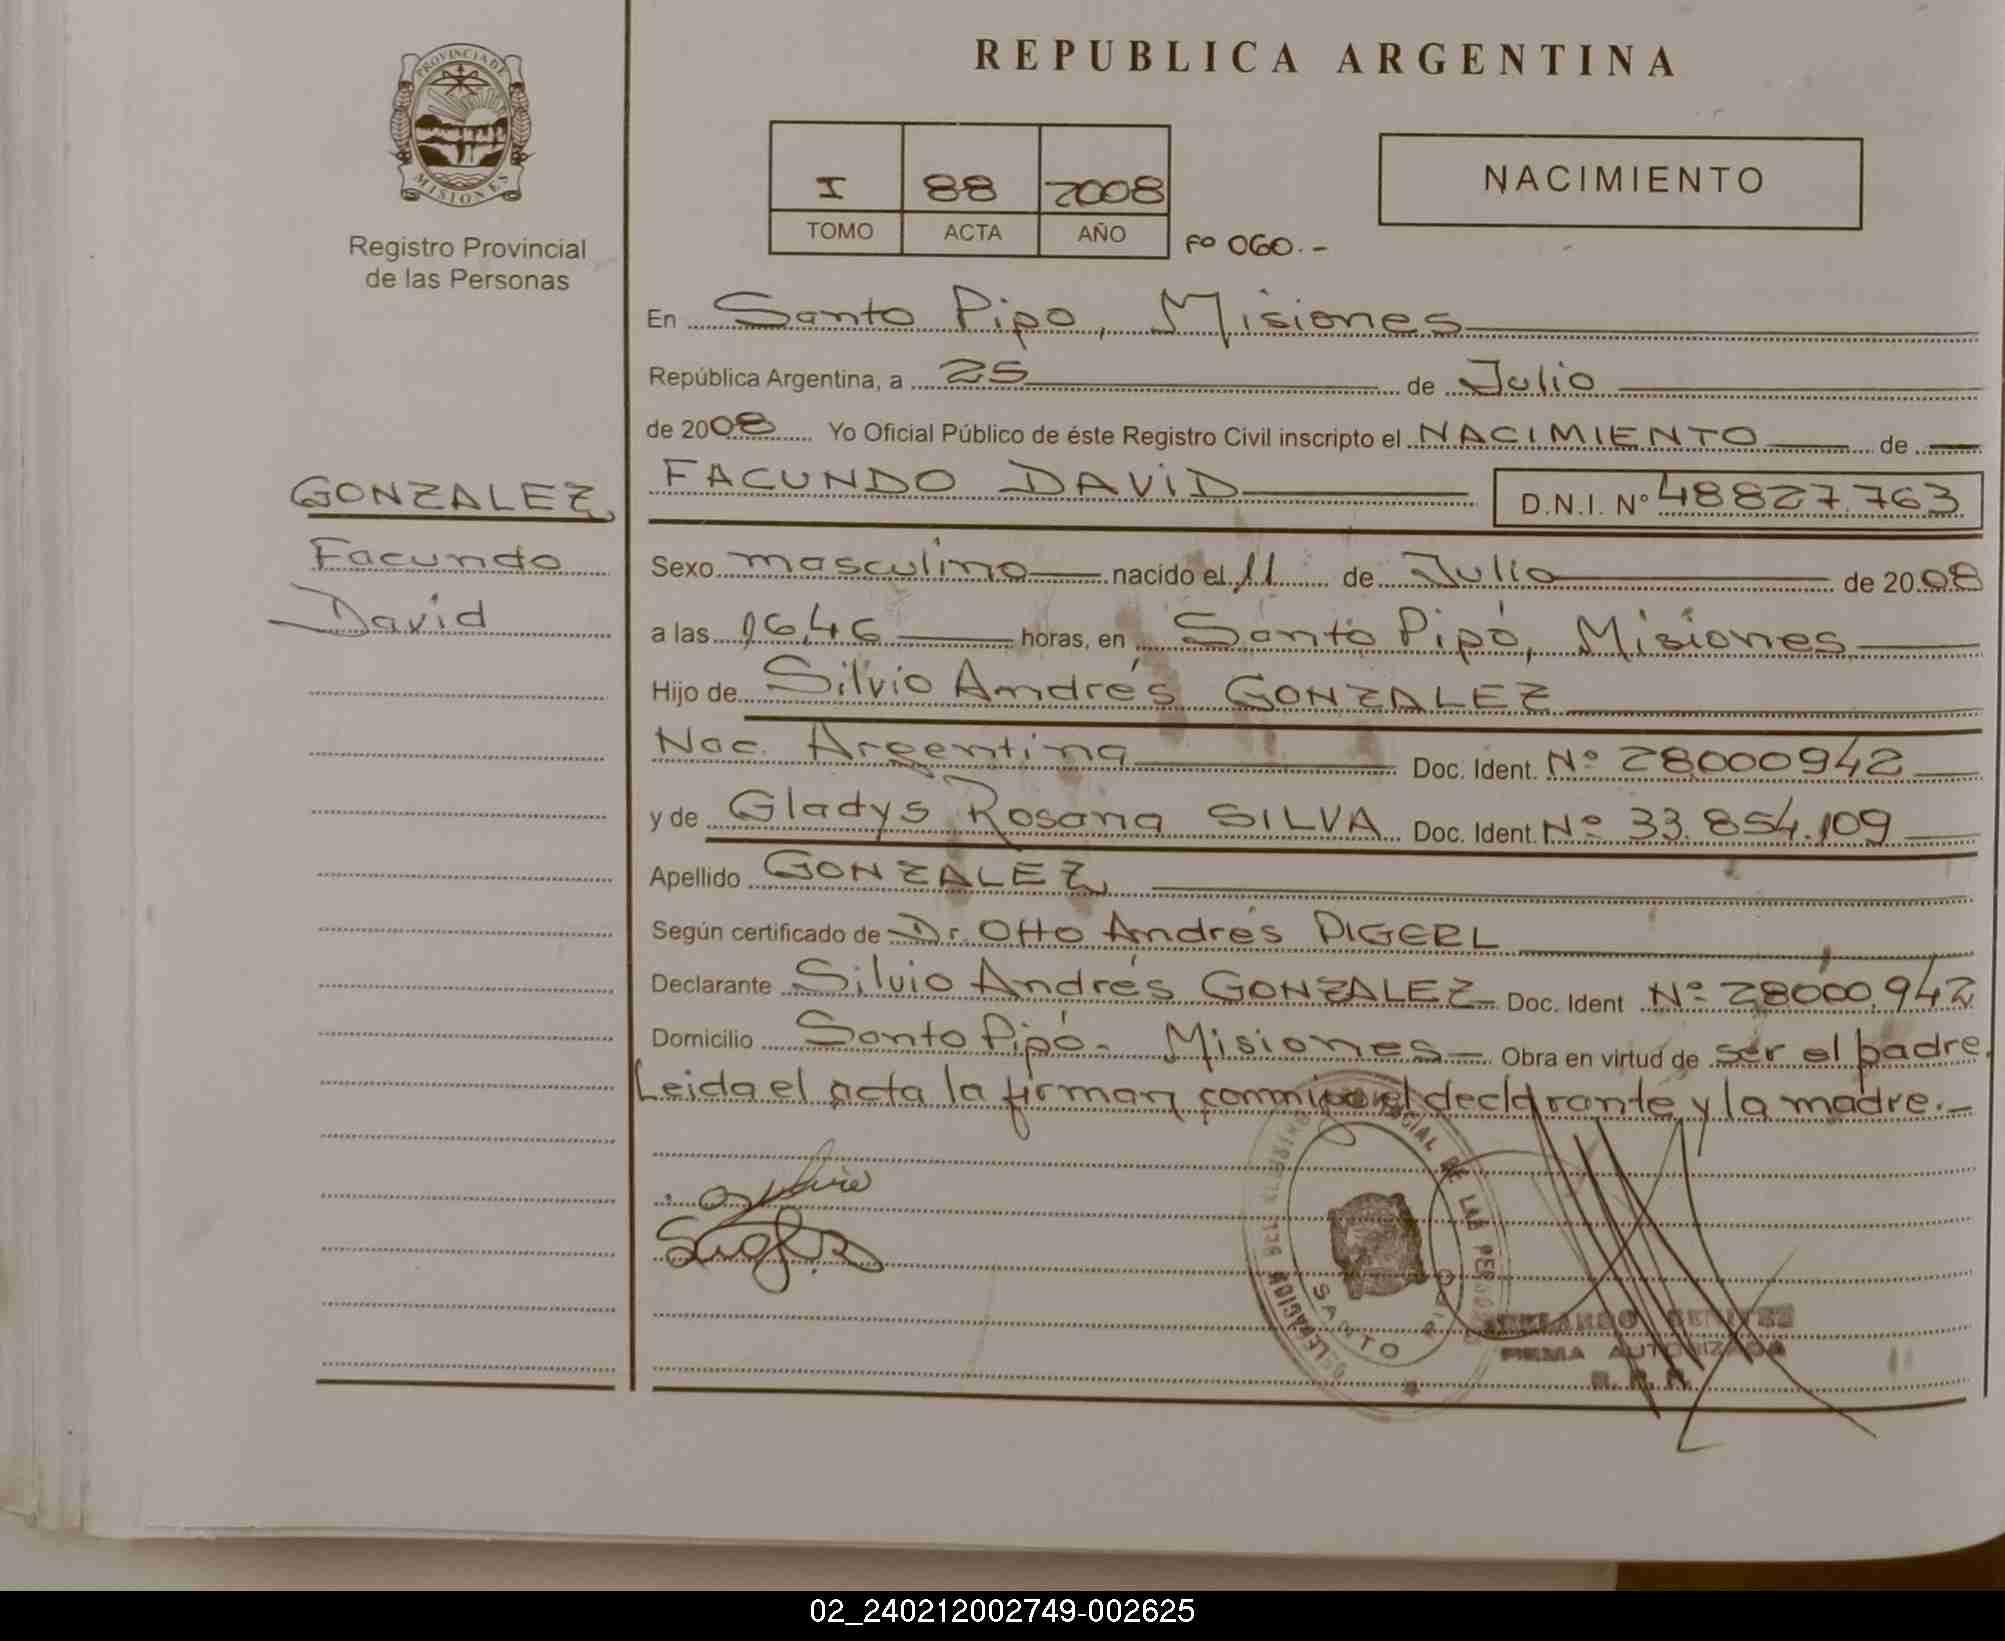 PROVINCIA DE
MISIONES
Registro Provincial
de las Personas
REPUBLICA ARGENTINA
I 88 2008
TOMO ACTA AÑO
Fo 060.-
NACIMIENTO
En Santo Pipo, Misiones
República Argentina, a 25 de Julio
de 2008 Yo Oficial Público de éste Registro Civil inscripto el NACIMIENTO de
FACUNDO DAVID D.N.I. Nº 48827.763
GONZALEZ
Facundo
David
Sexo masculino nacido el 11 de Julio de 2008
a las 16,46 horas, en Santo Pipó, Misiones
Hijo de Silvio Andrés GONZALEZ
Nac. Argentina Doc. Ident. Nº 28000942
y de Gladys Rosana SILVA Doc. Ident. Nº 33.854.109
Apellido GONZALEZ
Según certificado de Dr. Otto Andrés PIGERL
Declarante Silvio Andrés GONZALEZ Doc. Ident Nº 28000.942
Domicilio Santo Pipó - Misiones Obra en virtud de ser el padre.
Leida el acta la firman conmigo el declarante y la madre.-
DELEGACION DEL REGISTRO PROVINCIAL DE LAS PERSONAS
SANTO PIPO
BENITEZ
FIRMA AUTORIZADA
R. P. P.
02_240212002749-002625